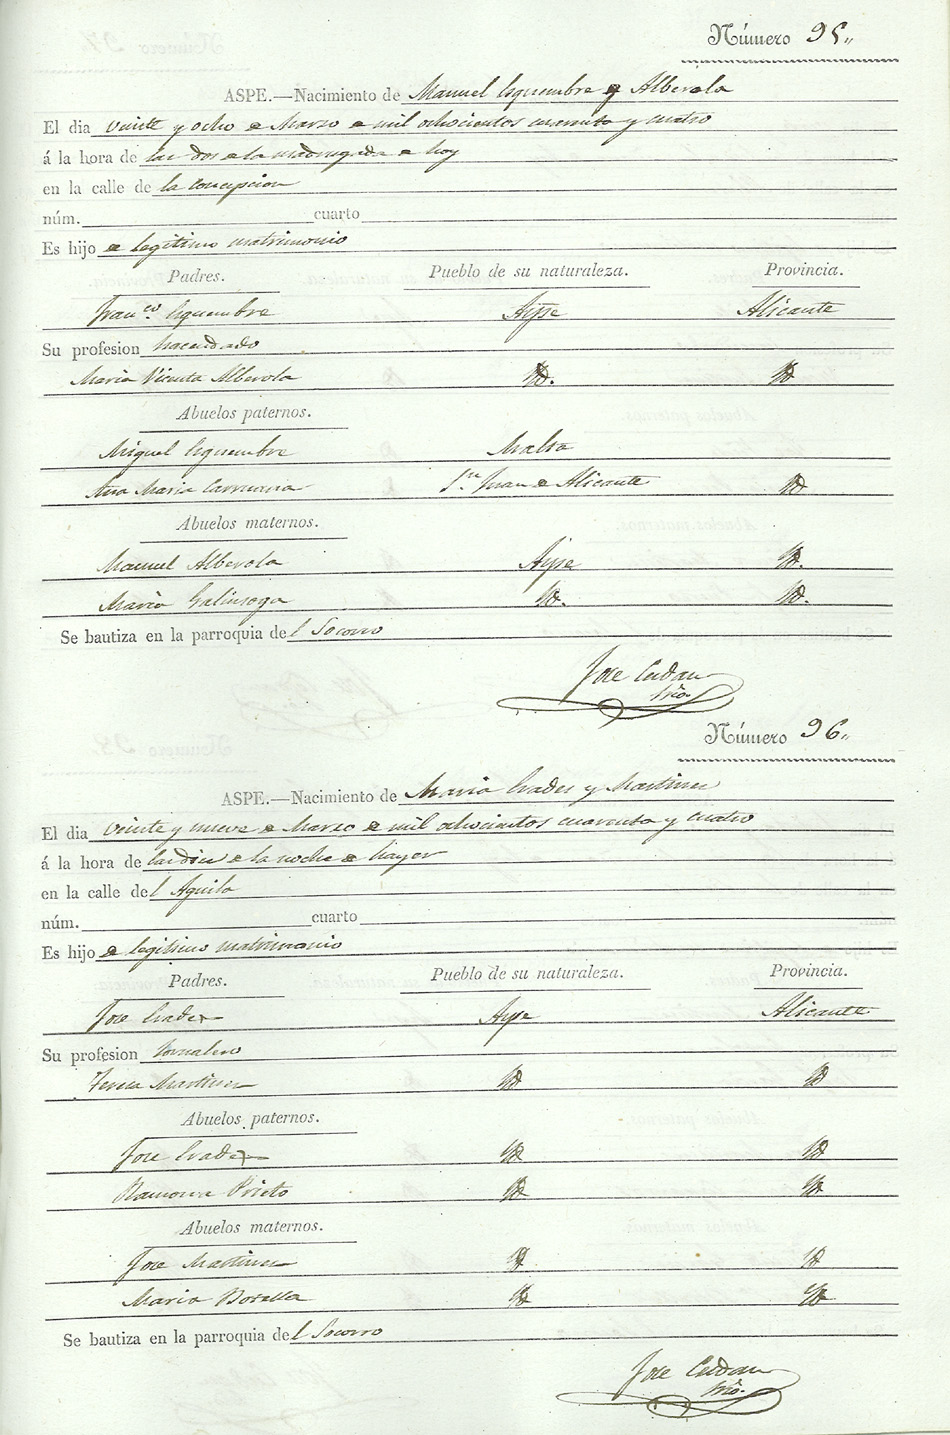 Número 95,,
ASPE.—Nacimiento de Manuel Esquembre y Alberola
El dia veinte y ocho de Marzo de mil ochocientos cuarenta y cuatro
á la hora de las dos de la madrugada de hoy
en la calle de la Concepcion
núm. cuarto
Es hijo de legitimo matrimonio
Padres. Pueblo de su naturaleza. Provincia.
Franco. Esquembre Aspe Alicante
Su profesion hacendado
Maria Vicenta Alberola Yd. Yd
Abuelos paternos.
Miguel Esquembre
Ana Maria Sn. Juan de Alicante Yd
Abuelos maternos.
Manuel Alberola Aspe Yd.
Maria Galinsoga Yd. Yd.
Se bautiza en la parroquia del Socorro
Jose Cerdan
Srio.
Número 96,,
ASPE.—Nacimiento de Maria Prades y Martinez
El dia veinte y nueve de Marzo de mil ochocientos cuarenta y cuatro
á la hora de las diez de la noche de hayer
en la calle del Aguila
núm. cuarto
Es hijo de legitimo matrimonio
Padres. Pueblo de su naturaleza. Provincia.
Jose Prades Aspe Alicante
Su profesion Jornalero
Teresa Martinez Yd Yd
Abuelos paternos.
Jose Prades Yd Yd
Ramona Prieto Yd Yd
Abuelos maternos.
Jose Martinez Yd Yd
Maria Botella Yd Yd
Se bautiza en la parroquia del Socorro
Jose Cerdan
Srio.